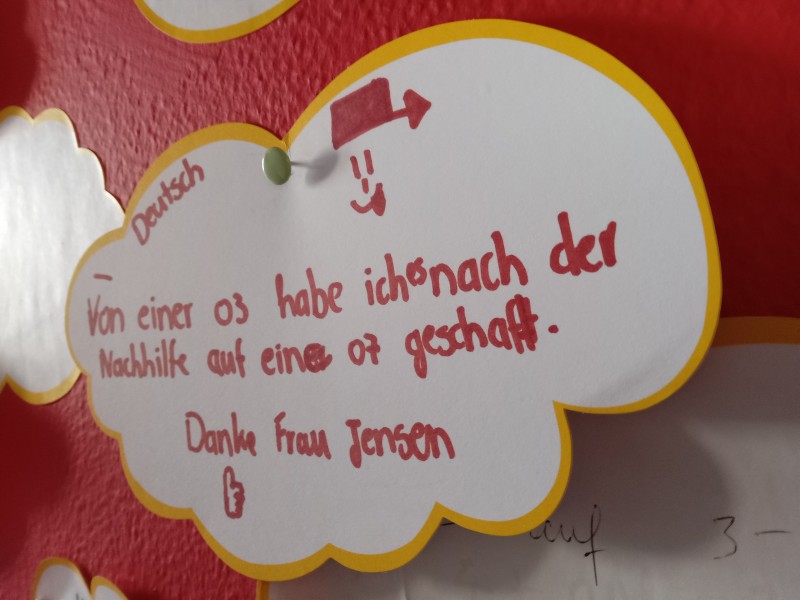 Deutsch
Von einer 03 habe ich nach der
Nachhilfe auf eine 07 geschafft.
Danke Frau Jensen
auf 3 –